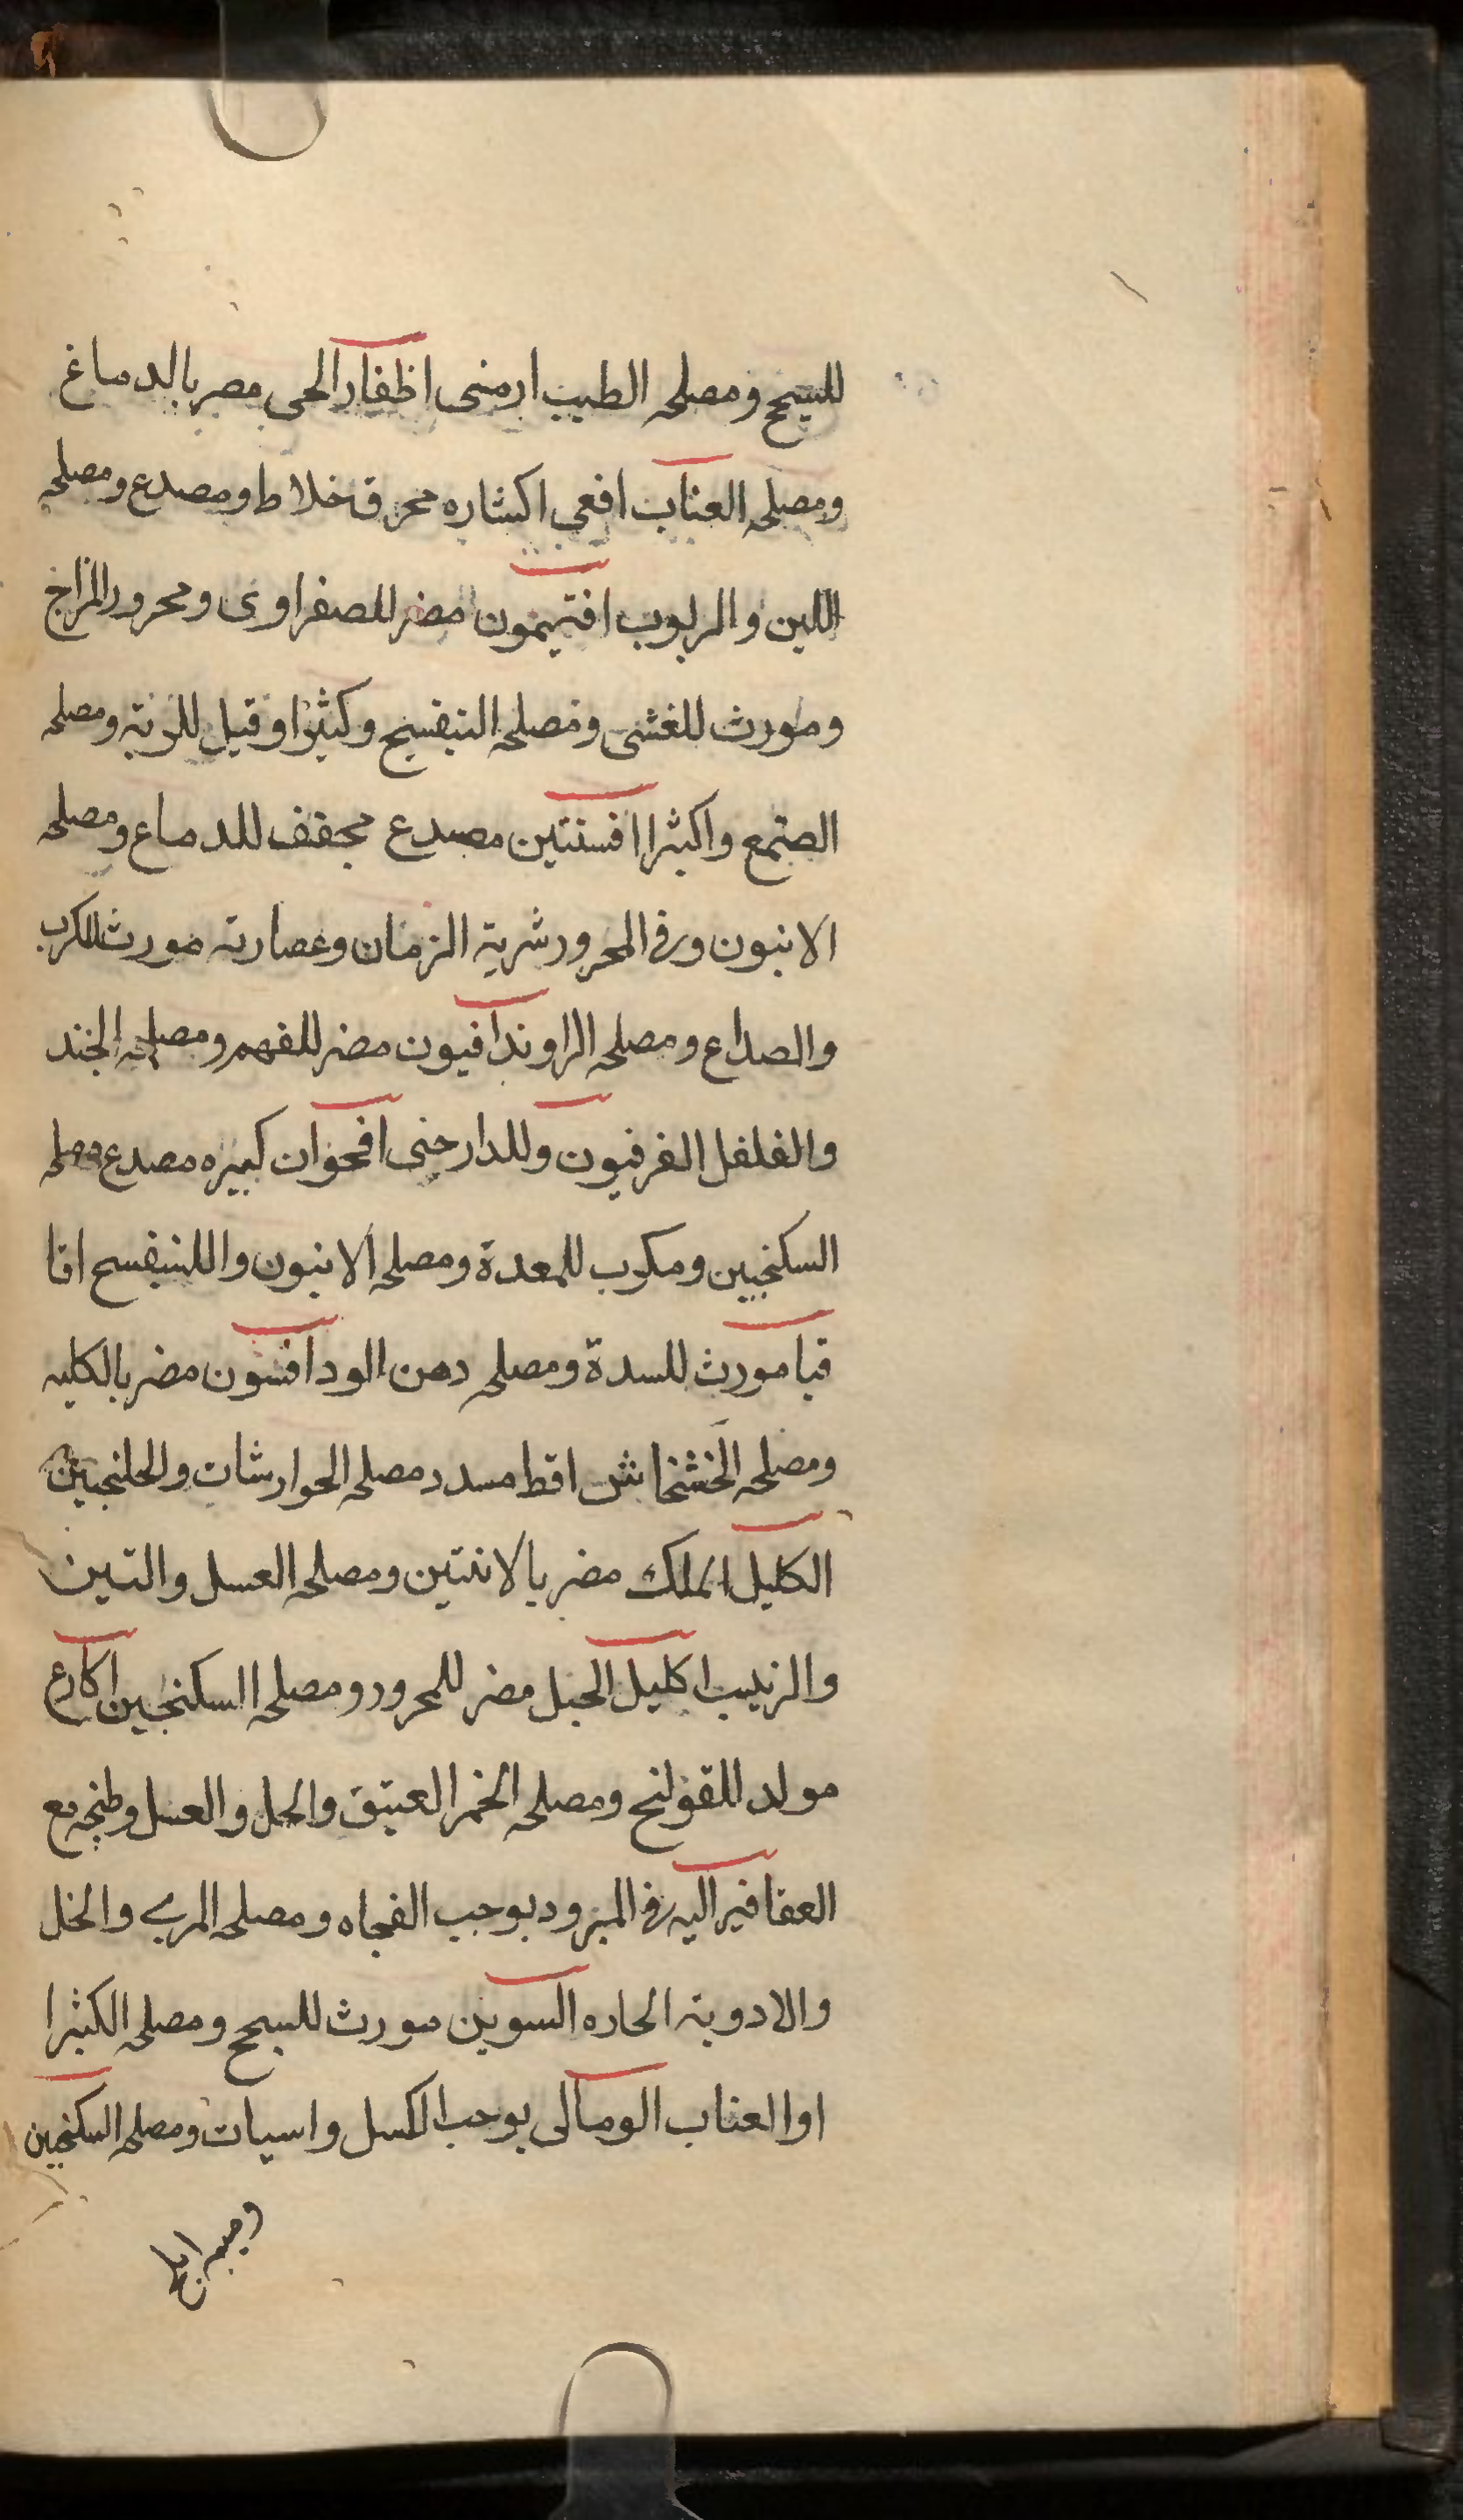 للسيحج ومصلحه الطيب ارمنى اظفار الحى مصر بالدماغ
ومصلحه العناب افعى اكثاره محرق خلاط ومصدع ومصلحه
اللبن والربوب افتيمون مضر للصفراوى ومحرور المزاج
ومورث للغشى ومصلحه البنفسج وكثيرا وقيل للرئة ومصلحه
الصتمع واكثرا افسنتين مصدع مجفف للدماع ومصلحه
الانبون وفى المحرور شربة الرمان وعصارته مورث للكرب
والصداع ومصلحه الراوند افيون مضر للفهم ومصلحه الجند
والفلفل الفرفيون وللدارجنى اقحوان كبيره مصدع ومصلحه
السكنجبين ومكرب للمعدة ومصلحه الانبون واللبنفسج اقا
قيا مورث للسدة ومصلحه دهن الود افسون مضر بالكليه
ومصلحه الخشخاش اقط مسدد مصلحه الجوارشات والجلنجبين
الكليل الملك مضر بالانثتين ومصلحه العسل والتين
والزبيب اكليل الجبل مضر للمحرور ومصلحه السكنجبين اكارع
مولد للقولنج ومصلحه الخمر العتيق والحل والعسل وطبخه مع
العقاقير اليه فى المبرود يوجب الفجاه ومصلحه المرى والخل
والادوية الحاره السوبن مورث للسحج ومصلحه الكثيرا
اوا العناب الومالى يوجب الكسل واسبات ومصلحه السكنجبين